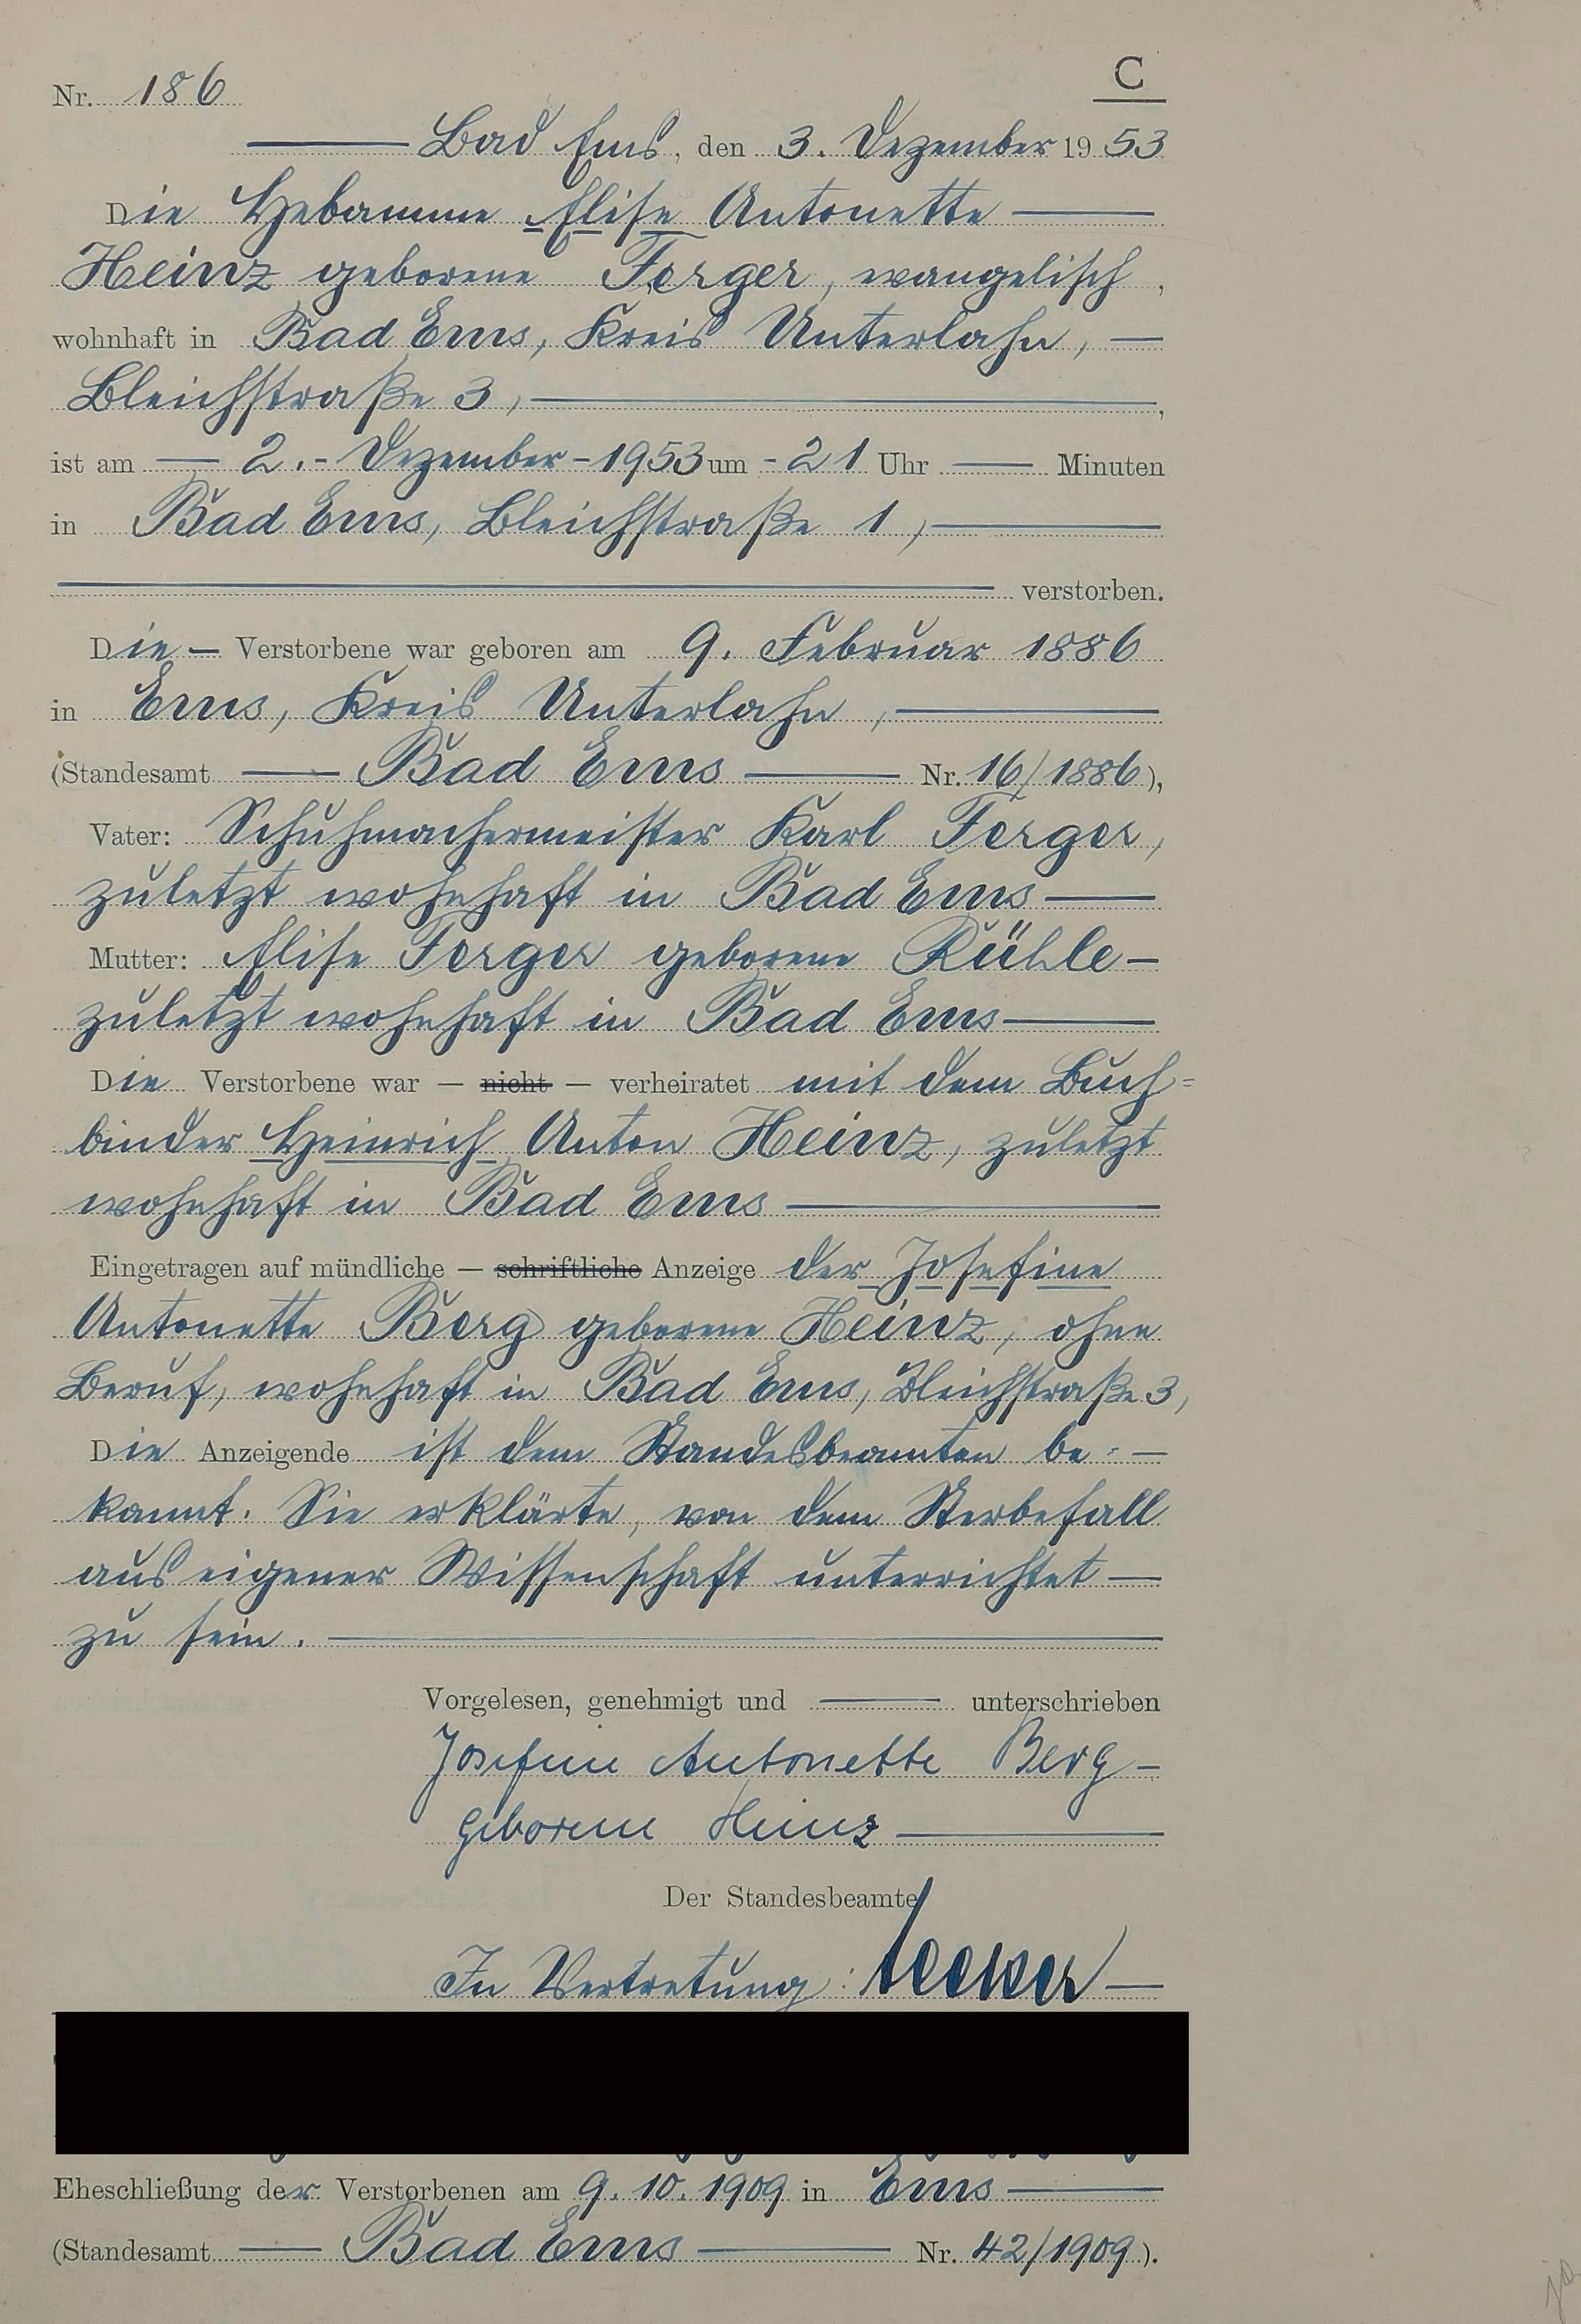 Nr. 186
C
Bad Ems, den 3. Dezember 1953
Die Hebamme Elise Antonette
Heinz geborene Ferger, evangelisch,
wohnhaft in Bad Ems, Kreis Unterlahn, —
Bleichstraße 3,
ist am — 2. - Dezember - 1953 um - 21 Uhr — Minuten
in Bad Ems, Bleichstraße 1,
verstorben.
Die — Verstorbene war geboren am 9. Februar 1886
in Ems, Kreis Unterlahn,
(Standesamt — Bad Ems — Nr. 16/1886),
Vater: Schuhmachermeister Karl Ferger,
zuletzt wohnhaft in Bad Ems —
Mutter: Elise Ferger geborene Rühle —
zuletzt wohnhaft in Bad Ems —
Die Verstorbene war — nicht — verheiratet mit dem Buch=
binder Heinrich Anton Heinz, zuletzt
wohnhaft in Bad Ems —
Eingetragen auf mündliche — schriftliche Anzeige der Josefine
Antonette Berg geborene Heinz, ohne
Beruf, wohnhaft in Bad Ems, Bleichstraße 3,
Die Anzeigende ist dem Standesbeamten be= —
kannt. Sie erklärte, von dem Sterbefall
aus eigener Wissenschaft unterrichtet —
zu sein. —
Vorgelesen, genehmigt und — unterschrieben
Josefine Antonette Berg —
geborene Heinz —
Der Standesbeamte
In Vertretung:
Eheschließung der Verstorbenen am 9. 10. 1909 in Ems —
(Standesamt — Bad Ems — Nr. 42/1909).